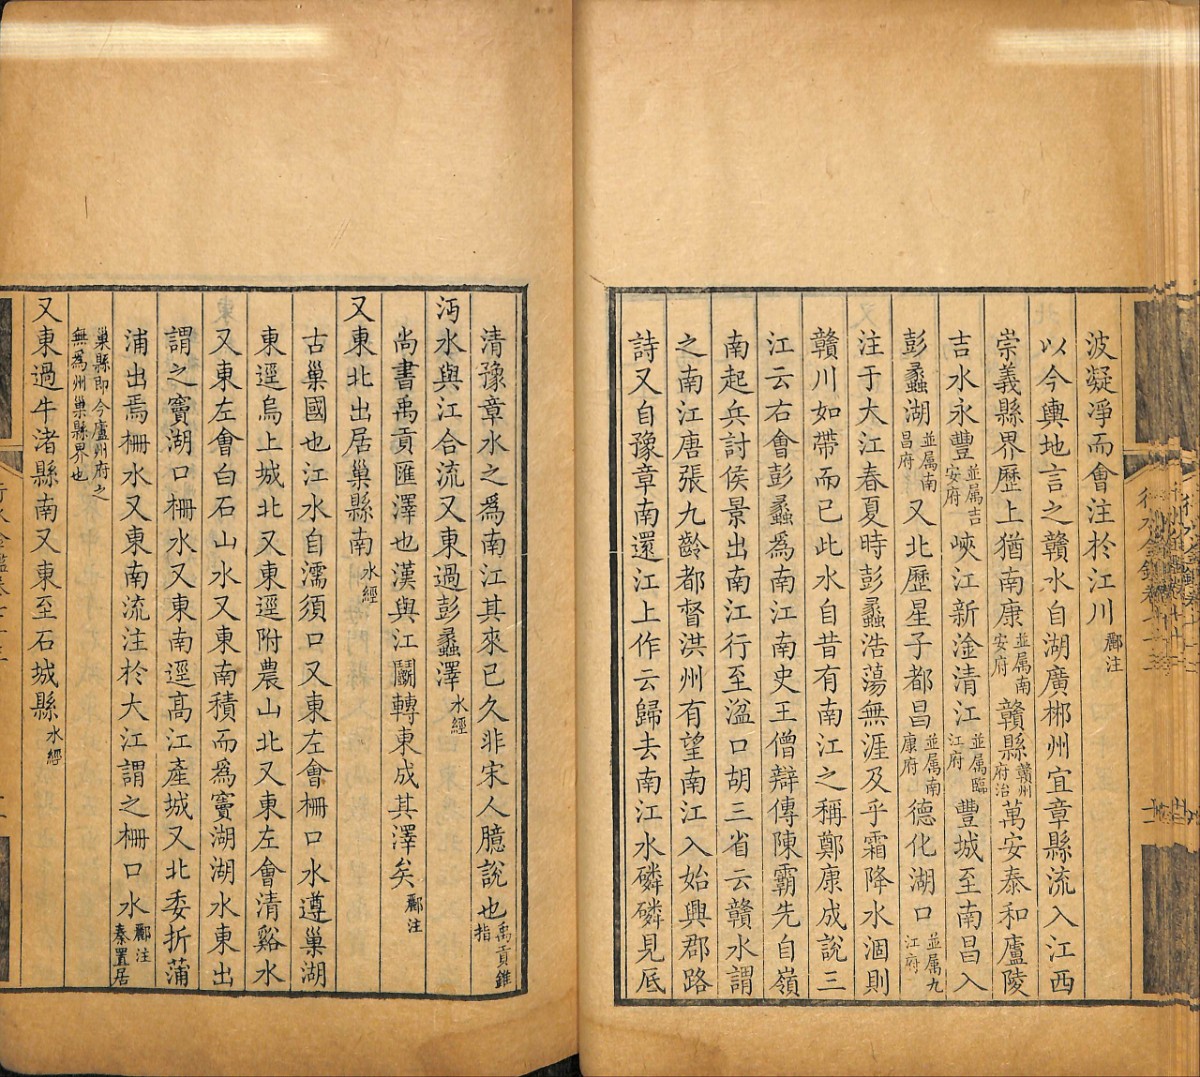 波凝淨而會注於江川酈注
以今輿地言之贛水自湖廣郴州宜章縣流入江西
崇義縣界歷上猶南康並属南安府贛縣贛州府治萬安泰和廬陵
吉水永豐並属吉安府峽江新淦清江並属臨江府豐城至南昌入
彭蠡湖並属南昌府又北歷星子都昌並属南康府德化湖口並属九江府
注于大江春夏時彭蠡浩蕩無涯及乎霜降水涸則
贛川如帶而已此水自昔有南江之稱鄭康成說三
江云右會彭蠡為南江南史王僧辯傳陳霸先自嶺
南起兵討侯景出南江行至湓口胡三省云贛水謂
之南江唐張九齡都督洪州有望南江入始興郡路
詩又自豫章南還江上作云歸去南江水磷磷見底
清豫章水之爲南江其來已久非宋人臆說也禹貢錐指
沔水與江合流又東過彭蠡澤水經
尚書禹貢匯澤也漢與江鬬轉東成其澤矣酈注
又東北出居巢縣南水經
古巢國也江水自濡須口又東左會柵口水導巢湖
東逕烏上城北又東逕附農山北又東左會清谿水
又東左會白石山水又東南積而爲竇湖湖水東出
謂之竇湖口柵水又東南逕高江產城又北委折蒲
浦出焉柵水又東南流注於大江謂之柵口水酈注秦置居
巢縣即今廬州府之無為州巢縣界也
又東過牛渚縣南又東至石城縣水經